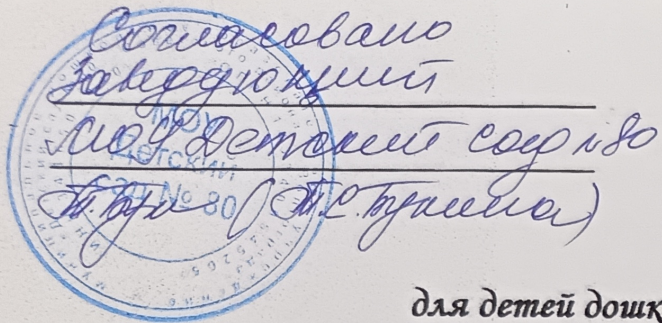 Согласовано
Заведующий
МОУ Детский сад №80
(Т.С. Букина)
МОУ
Детский
сад № 80
для детей дошк